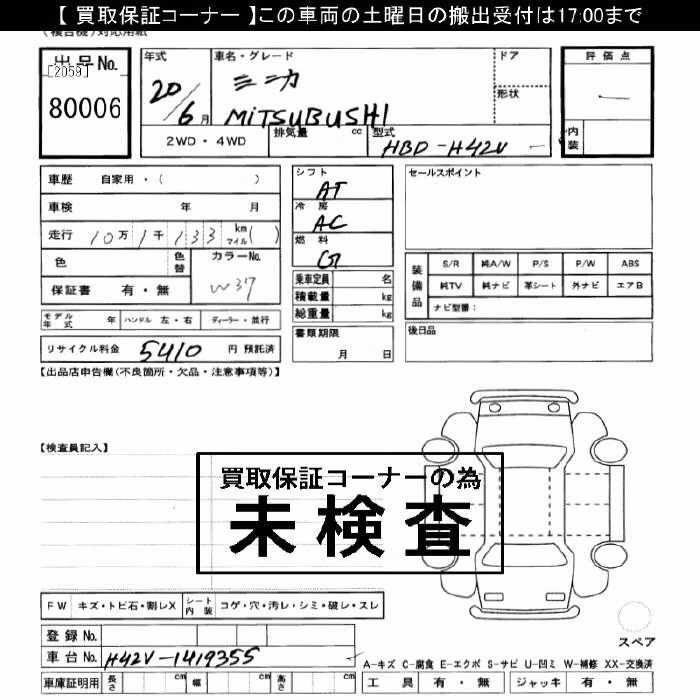 【 買取保証コーナー 】この車両の土曜日の搬出受付は17:00まで
(複合機)対応用紙
出品No.
[2059]
80006
年式
20/6月
車名・グレード
ミニカ
MiTSUBUSHI
ドア
形状
評価点
内装
2WD・4WD
排気量 cc
型式
HBD-H42V
車歴 自家用・( )
車検 年 月
走行 10万1千133 km マイル( )
色
色替
カラーNo.
W37
保証書 有・無
モデル年式 年 ハンドル 左・右 ディーラー・並行
リサイクル料金 5410 円 預託済
シフト
AT
冷房
AC
燃料
G
乗車定員 名
積載量 kg
総重量 kg
書類期限
月 日
セールスポイント
装備品
S/R 純A/W P/S P/W ABS
純TV 純ナビ 革シート 外ナビ エアB
ナビ型番:
後日品
【出品店申告欄(不良箇所・欠品・注意事項等)】
【検査員記入】
買取保証コーナーの為
未検査
FW キズ・トビ石・割レX シート内装 コゲ・穴・汚レ・シミ・破レ・スレ
登録No.
車台No. H42V-1419355
車庫証明用 長さ cm 幅 cm 高さ cm
スペア
A-キズ C-腐食 E-エクボ S-サビ U-凹ミ W-補修 XX-交換済
工具 有・無 ジャッキ 有・無